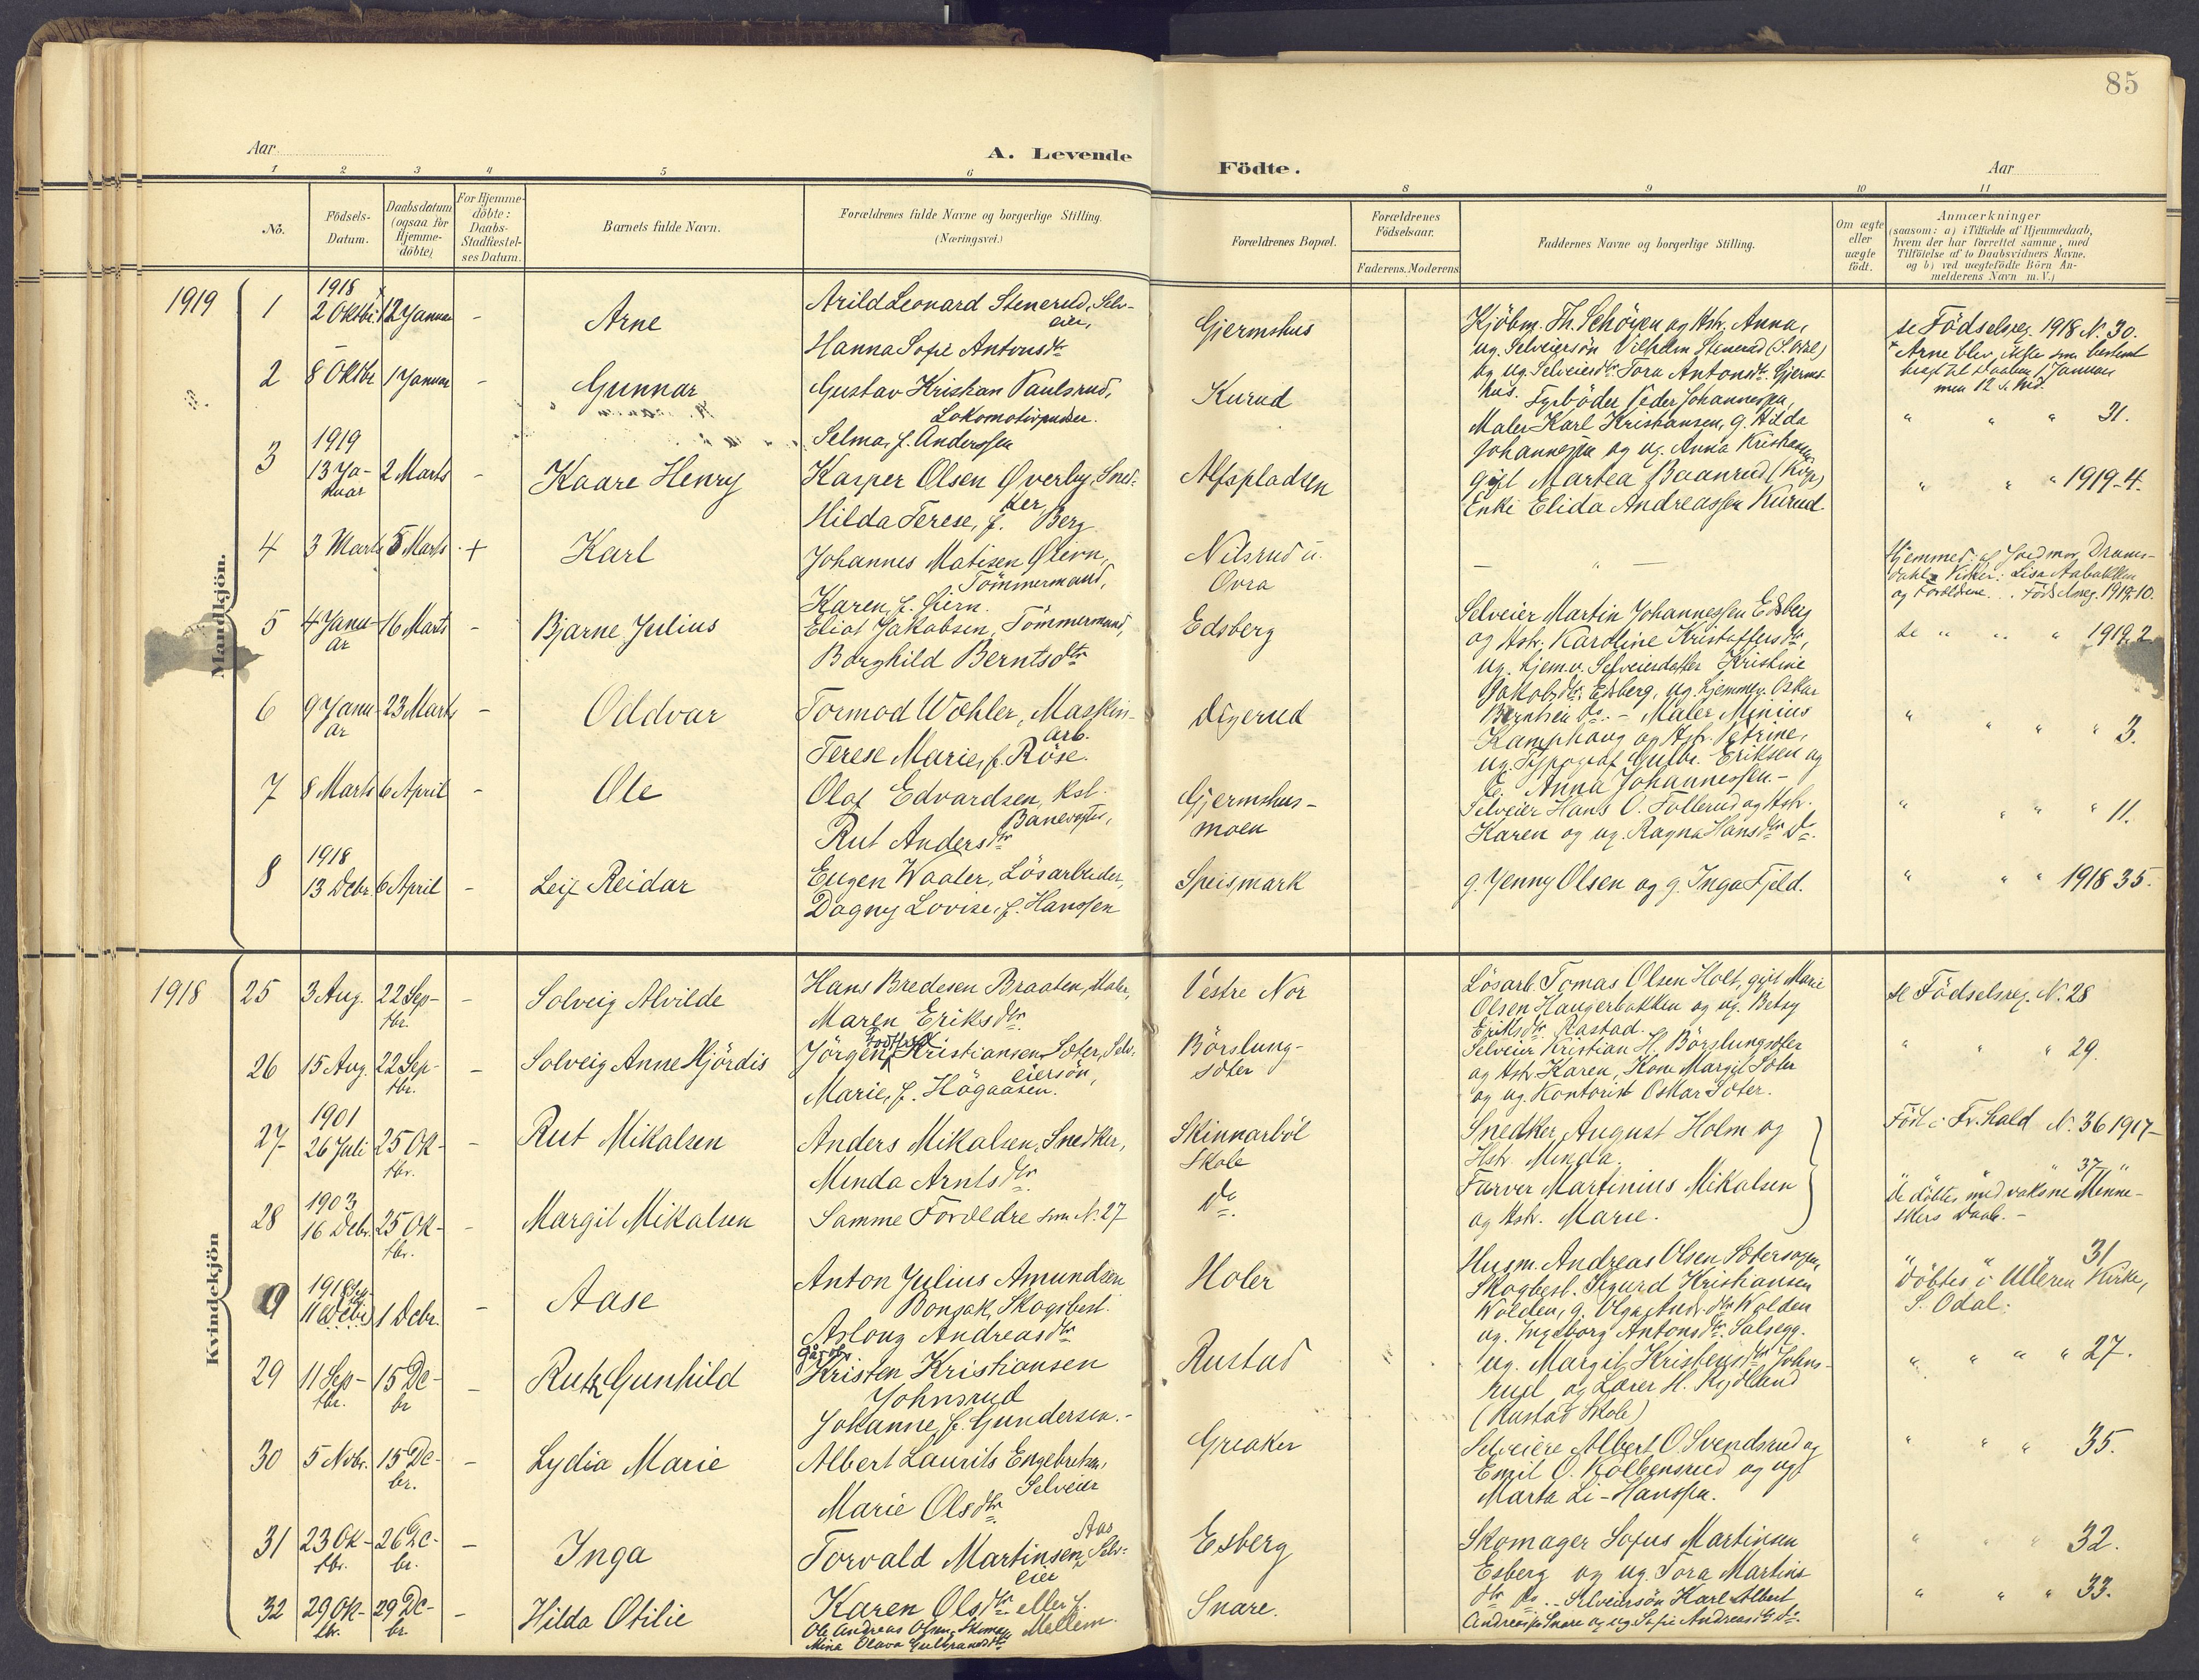 85
Aar
A. Levende
Födte.
Aar
1 2 3 4 5 6 8 9 10 11
No.
Födsels-
Datum.
Daabsdatum
(ogsaa for
Hjemme-
döbte)
For Hjemme-
döbte:
Daabs-
Stadfæstel-
ses Datum.
Barnets fulde Navn.
Forældrenes fulde Navne og borgerlige Stilling.
(Næringsvei.)
Forældrenes Bopæl.
Forældrenes
Födselsaar.
Faderens. Moderens
Faddernes Navne og borgerlige Stilling.
Om ægte
eller
uægte
födt.
Anmærkninger
(saasom: a) i Tilfælde af Hjemmedaab,
hvem der har forrettet samme, med
Tilföielse af to Daabsvidners Navne,
og b) ved uægtefödte Börn An-
melderens Navn m. V.)
Mandkjön.
1919
1 1918 2 Oktbr. 12 Januar - Arne
Arild Leonard Stenerud, Selv-
eier,
Hanna Sofie Antonsdtr
Gjermshus
Kjöbm. Th. Schöyen og Hstr. Anna,
ug. Selveiersön Vilhelm Stenerud (S. Odal)
og ug. Selveierdtr. Tora Antonsdtr. Gjerms-
hus.
se Födselsreg. 1918 N. 30.
* Arne blev ikke som bestemt
bragt til Daaben 1 Januar
men 12 s. Md.
2 8 Oktbr 1 Januar - Gunnar
Gustav Kristian Paulsrud,
Lokomotivpudser.
Selma, f. Anderssen
Kurud
Fyrböder Peder Johannessen,
Maler Karl Kristiansen, g. Hilda
Johannessen og ug. Anna Kristiansen
" " " 31.
3 1919 13 Ja-
nuar 2 Marts - Kaare Henry
Kasper Olsen Øverby, Sned-
ker,
Hilda Terese, f. Berg
Alfspladsen
gift Martea Baanrud
Enke Elida Andreassen Kurud
" " " 1919-4.
4 3 Marts 5 Marts + Karl
Johannes Matisen Øiern,
Tömmermand,
Karen, f. Øiern.
Nilsrud u.
Ovra
- " -
Hjemmed. af Jordmor Drams-
dahl. Vidner: Lisa Aabakken
og Forældrene. Födselsreg. 1919-10.
5 4 Janu-
ar 16 Marts - Bjarne Julius
Eliot Jakobsen, Tömmermand,
Borghild Berntsdtr
Edsberg
Selveier Martin Johannessen Edsberg
og Hstr. Karoline Kristoffersdtr,
ug. hjemv. Selveierdatter Kristine
Jakobsdtr. Edsberg, ug. hjemmev. Oskar
Berntsen do. -
se " " " 1919. 2
6 9 Janu-
ar 23 Marts - Oddvar
Tormod Wöhler, Masskin-
arb.
Terese Marie, f. Röse.
Digerud
Maler Minius
Kamphaug og Hstr. Petrine,
ug. Typograf Gulbr. Eriksen og
Anna Johannessen. -
" " " " 3.
7 8 Marts 6 April - Ole
Olaf Edvardsen, kst.
Banevogter,
Rut Andersdtr
Gjermshus-
moen
Selveier Hans O. Tollerud og Hstr.
Karen og ug. Ragna Hansdtr Do.
" " " " 11.
8 1918 13 Debr. 6 April - Leif Reidar
Eugen Waaler, Lösarbeider,
Dagny Lovise, f. Hanssen
Speismark
g. Jenny Olsen og g. Inga Fjeld.
" " " 1918 35.
Kvindekjön
1918
25 3 Aug. 22 Sep-
tbr. - Solveig Alvilde
Hans Bredesen Braaten, Maler,
Maren Eriksdtr.
Vestre Nor
Lösarb. Tomas Olsen Holt, gift Marie
Olsen Haugerbakken og ug. Betsy
Eriksdtr. Rastad.
se Födselsreg. N. 28
26 15 Aug. 22 Sep-
tbr. - Solveig Anne Hjördis
Jörgen Kristiansen Soter, Selv-
eiersön,
Marie, f. Högaasen.
Börslung-
soter
Selveier Kristian H. Börslungsoter
og Hstr Karen, Kone Margit Soter
og ug. Kontorist Oskar Soter.
" " " 29.
27 1901 26 Juli 25 Ok-
tbr. - Rut Mikalsen
Anders Mikalsen, Snedker,
Minda Arntsdtr.
Skinnarböl
Skole
Snedker August Holm og
Hstr. Minda.
Farver Martinius Mikalsen
og Hstr. Marie.
Född i Fr.hald N. 36 1917-
28 1903 16 Debr. 25 Ok-
tbr. - Margit Mikalsen
Samme Forældre som N. 27
Do.
" " 37 "
De döbtes med voksne Menne-
skers Daab. -
9 1918 1 Debr. - Aase
Anton Julius Amundsen
Bonsak, Skogsbest.
Aslaug Andreasdtr
Holer
Husm. Andreas Olsen Sotersagen,
Skogbest. Sigurd Kristiansen
Wolden, g. Olga Andr.dtr Wolden
ug. Ingeborg Antonsdtr. Salsegg.
" " " 31
Döbtes i Ulleren Kirke,
S. Odal.
29 11 Sep-
tbr. 15 De-
br - Ruth Gunhild
Kristen Kristiansen
Johnsrud
Johanne, f. Gundersen. -
Rustad
ug. Margit Kristensdtr Johns-
rud og Lærer H. Rydland
(Rustad Skole)
" " " " 27.
30 5 Nvbr. 15 De-
br. - Lydia Marie
Albert Laurits Engebretsen,
Selveier
Marie Olsdtr.
Greaker
Selveiere Albert O. Svendsrud og
Emil O. Kolbensrud og ugt
Marta Li-Hanssen.
" " " 35.
31 23 Ok-
tbr. 26 De-
br. - Inga
Torvald Martinsen Aas, Selv-
eier
Karen Olsdtr eller f.
Mellem.
Esberg
Skomager Sofus Martinsen
Esberg og ug. Tora Martins
dtr do. -
" " " 32.
32 29 Ok-
tbr. 29 De-
br. - Hilda Otilie
Ole Andreas Olsen, Skomag.
Mina Olava Gulbrandsdtr.
Snare.
Selveiersön Karl Albert
Andreassen Snare og ug Sofie Andreasdtr do.
" " " 33.